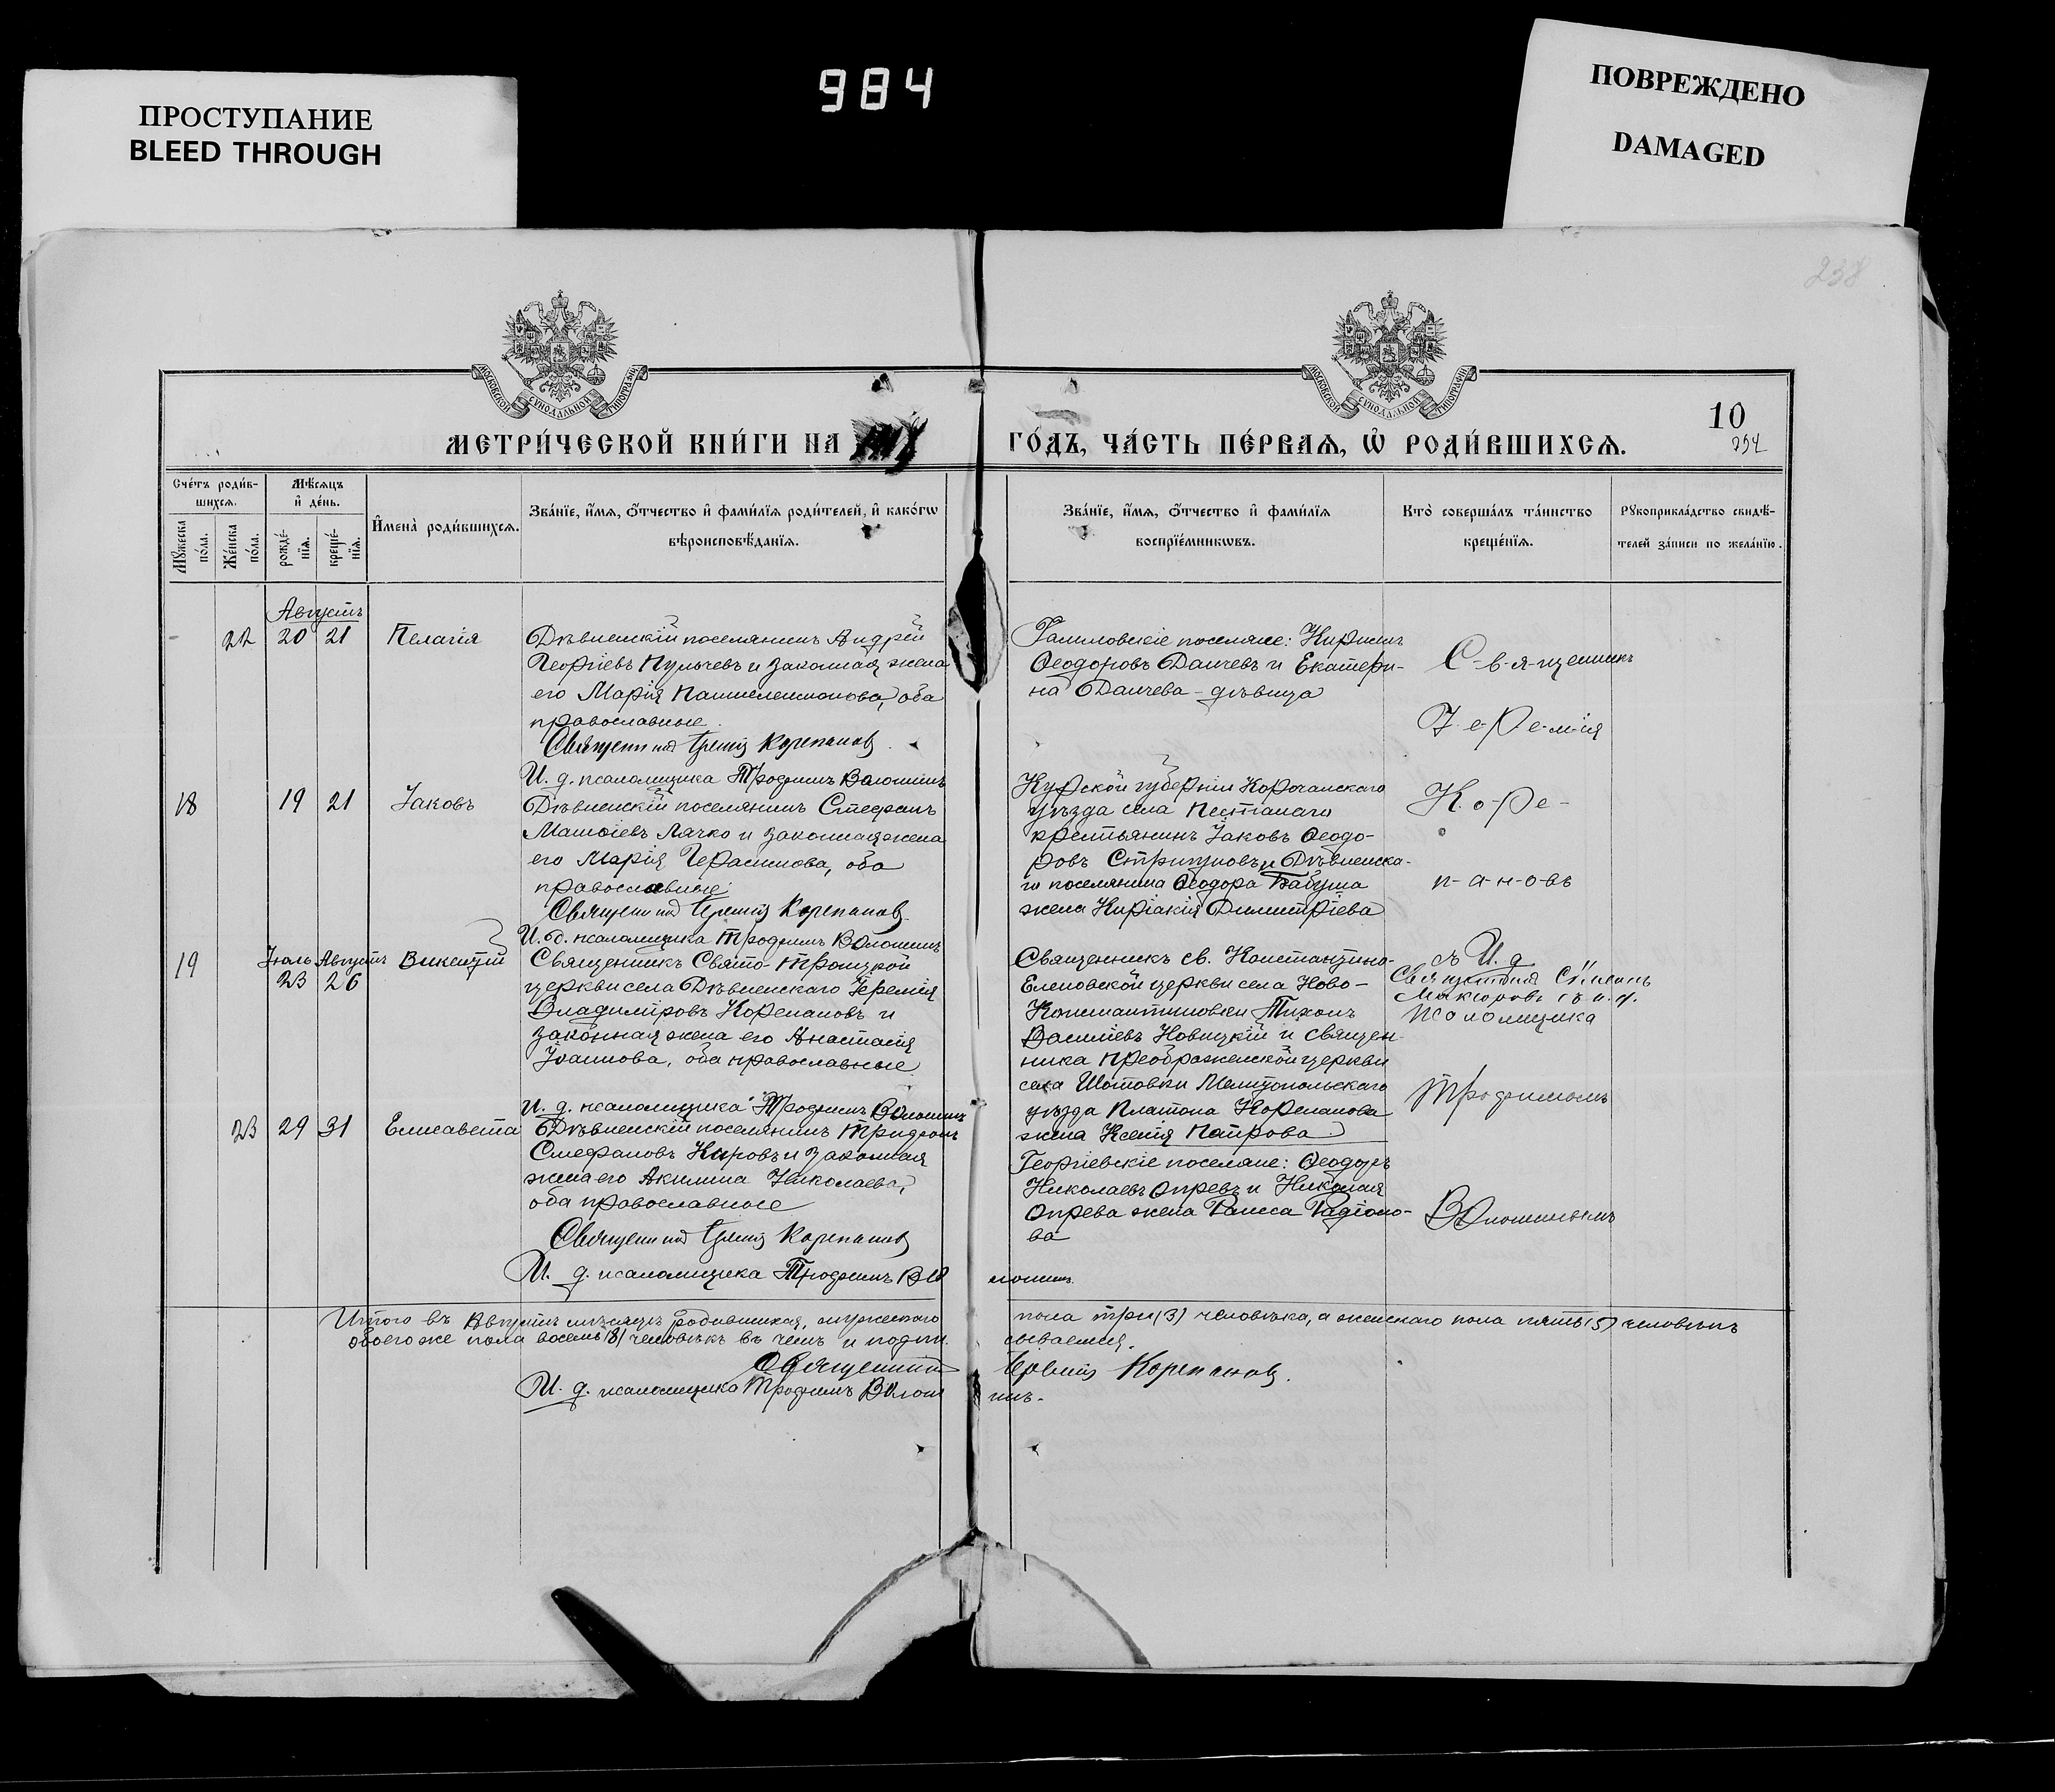 984
ПРОСТУПАНИЕ
BLEED THROUGH
ПОВРЕЖДЕНО
DAMAGED
238
МОСКОВСКОЙ СѴНОДАЛЬНОЙ ТИПОГРАФІИ
МОСКОВСКОЙ СѴНОДАЛЬНОЙ ТИПОГРАФІИ
МЕТРИ́ЧЕСКОЙ КНИ́ГИ НА
ГО́ДЪ, ЧА́СТЬ ПЕ́РВАЯ, Ѡ҆ РОДИ́ВШИХСЯ.
10
Сче́тъ роди́в-
шихся.
Мѣ́сяцъ
и҆ де́нь.
Мꙋ́жеска по́ла.
Же́нска по́ла.
рожде́-нїя.
креще́-нїя.
И҆мена̀ роди́вшихся.
Зва́нїе, и҆́мя, ѻ҆́тчество и҆ фами́лїя роди́телей, и҆ како́гѡ
вѣроисповѣ́данїя.
Зва́нїе, и҆́мя, ѻ҆́тчество и҆ фами́лїя
воспрїе́мникѡвъ.
Кто̀ соверша́лъ та́инство
креще́нїя.
Рꙋкоприкла́дство свидѣ́-
телей за́писи по жела́нїю.
Августъ
22 20 21 Пелагія
Дѣвненскій поселянинъ Андрей
Георгіевъ Пульчевъ и законная жена
его Марія Пантелеимонова, оба
православные.
Священникъ Іеремія Корепановъ
И. д. псаломщика Трофимъ Волошинъ
Поселяне: Кириллъ
Ѳеодоровъ Данчевъ и Екатери-
на Данчева - дѣвица
С-в-я-щенникъ
І-е-ре-м-ія
18 19 21 Іаковъ
Дѣвненскій поселянинъ Стефанъ
Матѳіевъ Лячко и законная жена
его Марія Герасимова, оба
православные
Священникъ Іеремія Корепановъ
И. д. псаломщика Трофимъ Волошинъ
Курской губерніи Корочанскаго
уѣзда села
крестьянинъ Іаковъ Ѳеодо-
ровъ Стригуновъ и Дѣвненска-
го поселянина Ѳеодора Бабуша
жена Киріакія Димитріева
К-о-ре-
п-а-н-о-въ
19 Іюль 23 Августъ 26 Викентій
Священникъ Свято-Троицкой
церкви села Дѣвненскаго Іеремія
Владиміровъ Корепановъ и
законная жена его Анастасія
Іоаннова, оба православные
И. д. псаломщика Трофимъ Волошинъ
Священникъ св. Константино-
Еленовской церкви села Ново-
Константиновки Тихонъ
Василіевъ Новицкій и священ-
ника Преображенской церкви
села Шотовки Мелитопольскаго
уѣзда Платона Корепанова
жена Ксенія Петрова
съ И. д.
съ и. д.
псаломщика
Трофимомъ
23 29 31 Елисавета
Дѣвненскій поселянинъ Трифонъ
Стефановъ Кировъ и законная
жена его Акилина Николаева,
оба православные
Священникъ Іеремія Корепановъ
И. д. псаломщика Трофимъ Волошинъ
Георгіевскіе поселяне: Ѳеодоръ
Николаевъ Опревъ и Николая
Опрева жена Раиса Радіоно-
ва
Волошинымъ
Итого въ Августѣ мѣсяцѣ родившихся, мужескаго пола три (3) человѣка, а женскаго пола пять (5) человѣкъ
обоего же пола восемь (8) человѣкъ въ чемъ и подписываемся.
Священникъ Іеремія Корепановъ.
И. д. псаломщика Трофимъ Волошинъ.